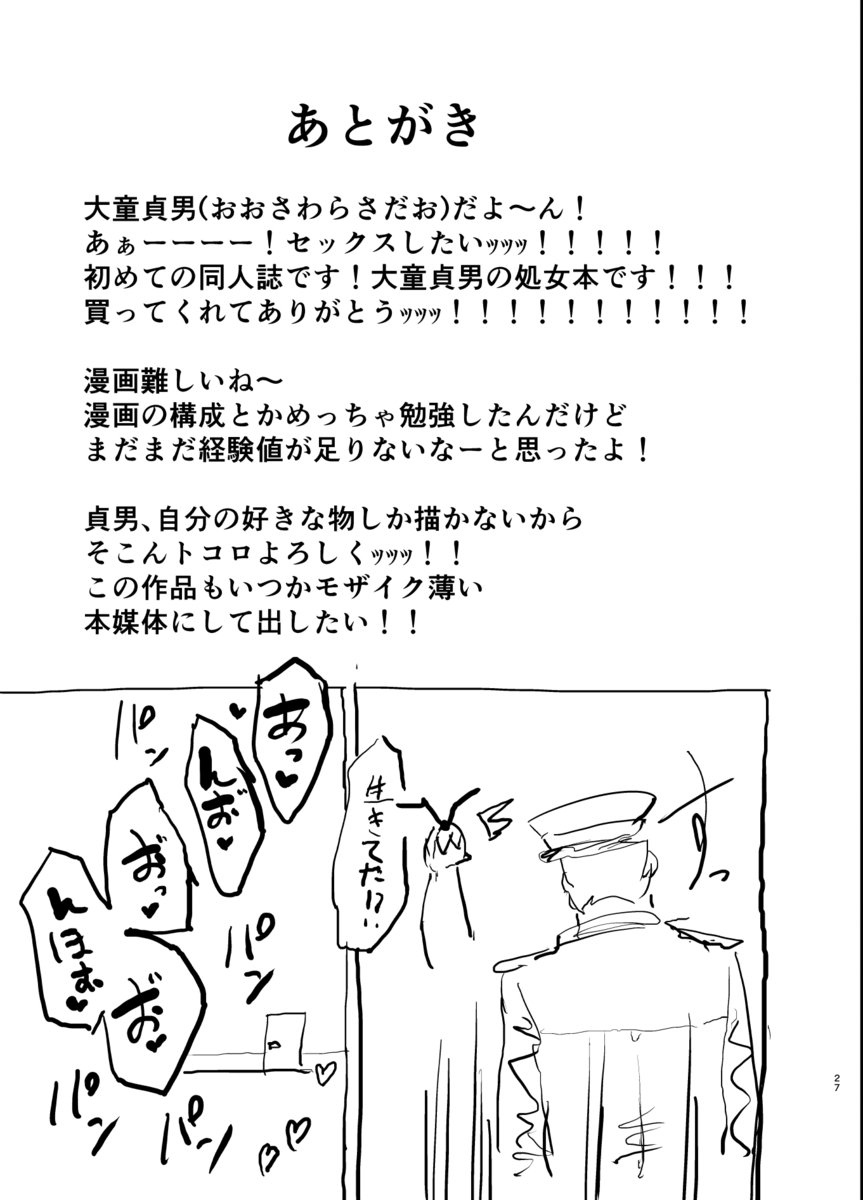 あとがき
大童貞男(おおさわらさだお)だよ～ん！
あぁーーーー！セックスしたいｯｯｯ！！！！！
初めての同人誌です！大童貞男の処女本です！！！
買ってくれてありがとうｯｯｯ！！！！！！！！！！！
漫画難しいね～
漫画の構成とかめっちゃ勉強したんだけど
まだまだ経験値が足りないなーと思ったよ！
貞男、自分の好きな物しか描かないから
そこんトコロよろしくｯｯｯ！！
この作品もいつかモザイク薄い
本媒体にして出したい！！
すっ
生きてた!?
あっ♥
んお♥
おっ♥
お♥
んほお♥
パン
パン
パン
パン
27